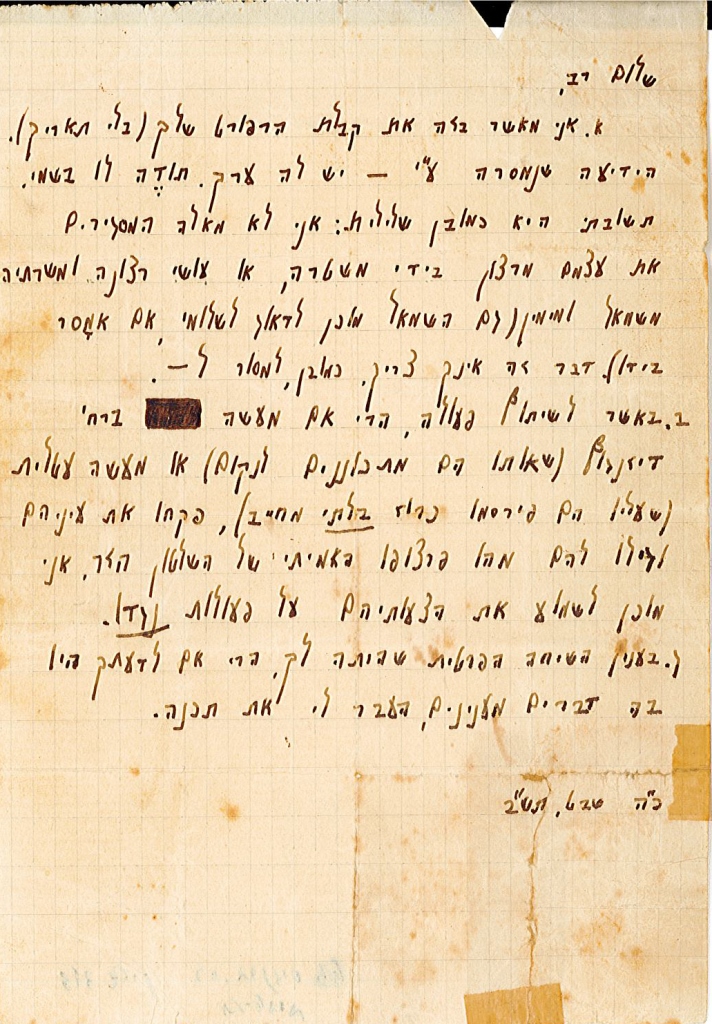 שלום רב,
א. אני מאשר בזה את קבלת הרפורט שלך (בלי תאריך).
הידיעה שנמסרה ע"י — יש לה ערך. תודֶה לו בשמי.
תשובתי היא כמובן שלילית: אני לא מאלה המסגירים
את עצמם מרצון בידי משטרה, או עושי רצונה ומשרתיה
משמאל ומימין (גם השמאל מוכן לדאוג לשלומי, אם אמָסר
בידו). דבר זה אינך צריך, כמובן, למסור ל—.
ב. באשר לשיתוף פעולה, הרי אם מעשה ברח'
דיזנגוף (שאותו הם מתכוננים לנקום) או מעשה עטלית
(שעליו הם פירסמו כרוז בלתי מחייב), פקחו את עיניהם
וגילו להם מהו פרצופו האמיתי של השלטון הזר, אני
מוכן לשמוע את הצעותיהם על פעולות נגדו.
ג. בענין השיחה הפרטית שהיתה לך, הרי אם לדעתך היו
בה דברים מענינים, העבר לי את תכנה.
כ"ה שבט, תש"ב